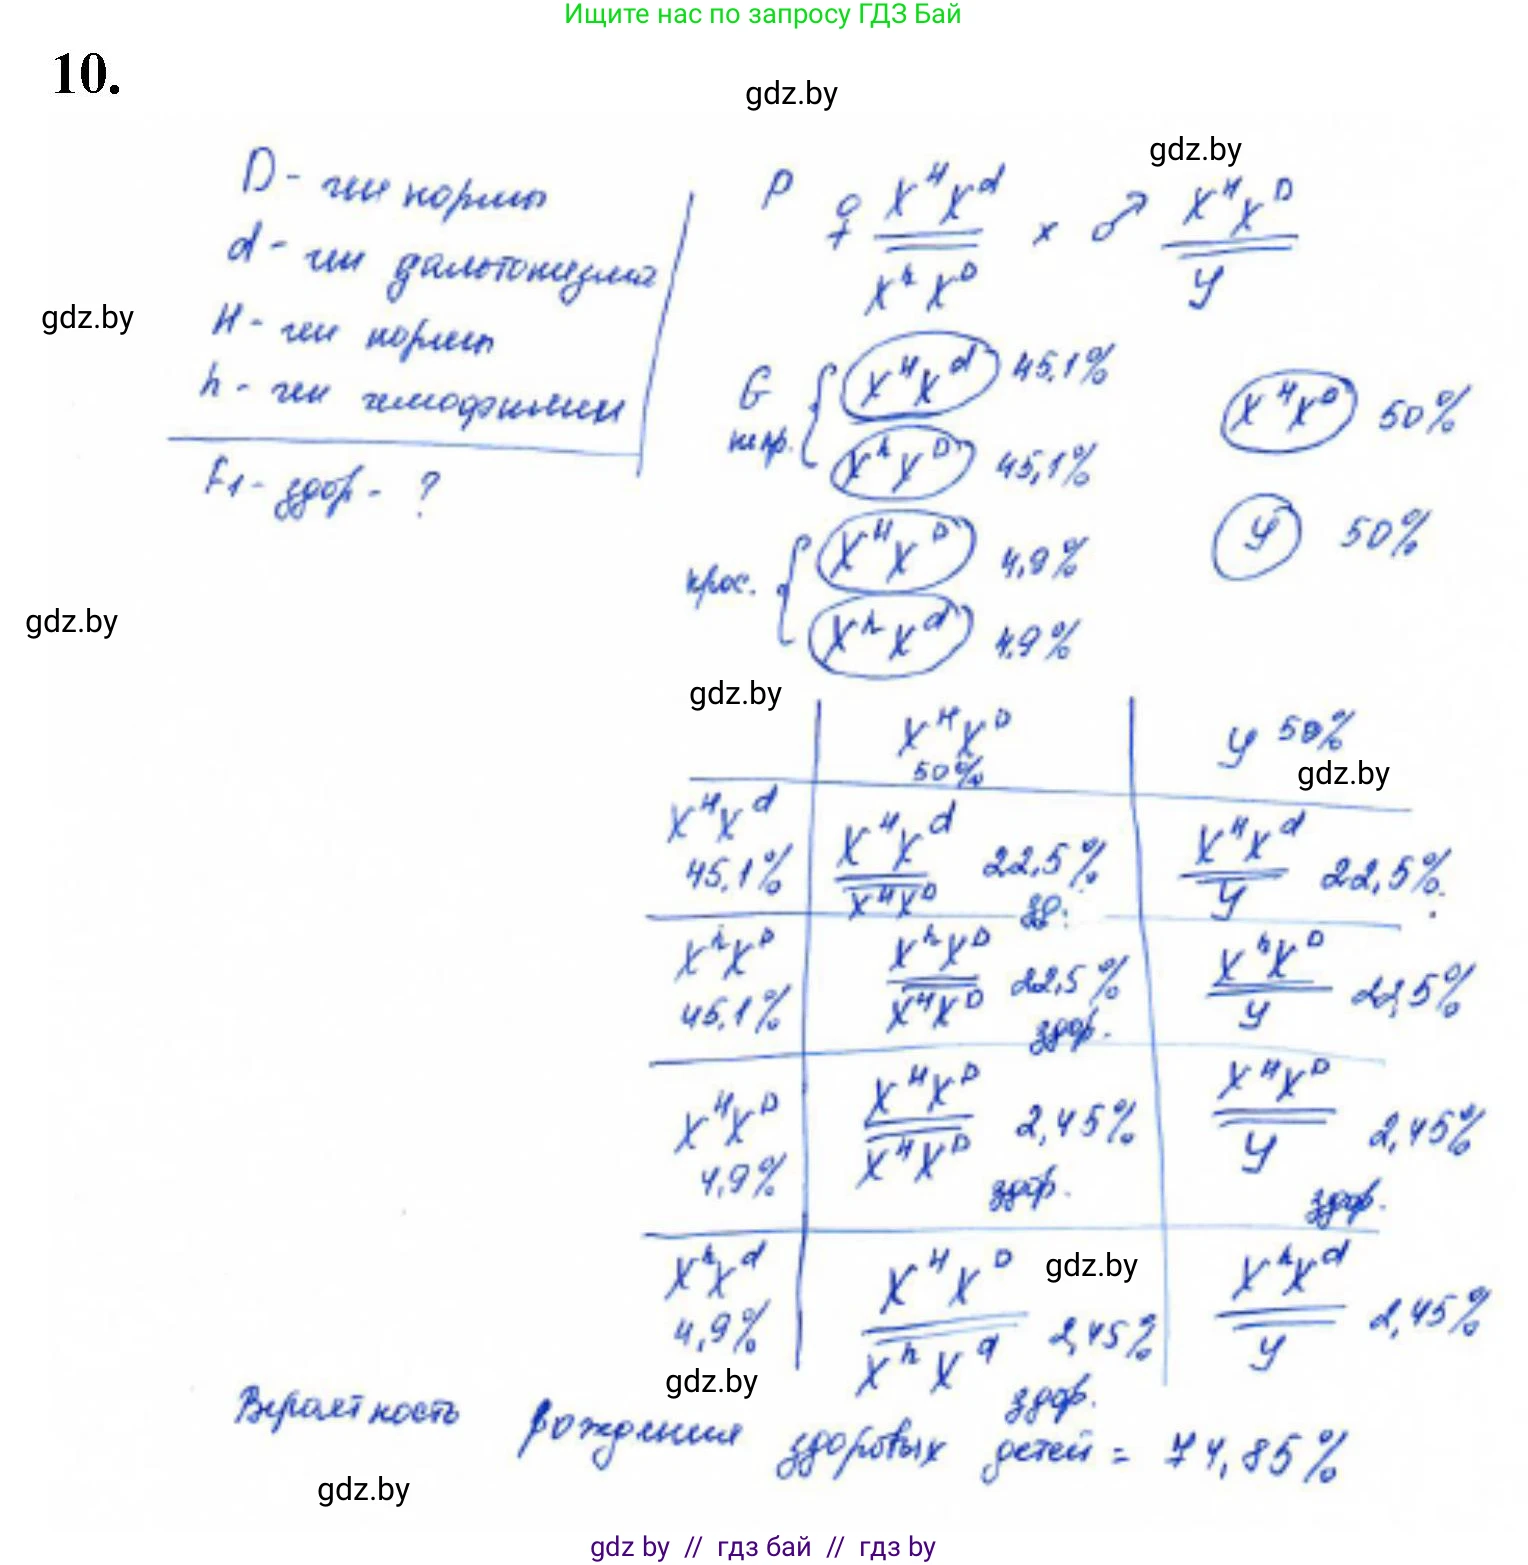 Ищите нас по запросу ГДЗ Бай
10.
gdz.by
gdz.by
D - ген нормы
d - ген дальтонизма
gdz.by
H - ген нормы
h - ген гемофилии
F1 - здор - ?
P ♀ X^H X^d x ♂ X^H X^D
X^h X^D У
G
непр. { X^H X^d 45,1% X^H X^D 50%
X^h X^D 45,1%
крос. { X^H X^D 4,9% У 50%
X^h X^d 4,9%
gdz.by
gdz.by
X^H X^D 50% У 50%
gdz.by
X^H X^d 45,1% X^H X^d 22,5% X^H X^d 22,5%.
X^H X^D зд. У
X^h X^D 45,1% X^h X^D 22,5% X^h X^D 22,5%
X^H X^D здор. У
X^H X^D 4,9% X^H X^D 2,45% X^H X^D 2,45%
X^H X^D здор. У здор.
X^h X^d 4,9% X^H X^D 2,45% X^h X^d 2,45%
X^h X^d здор. У
gdz.by
gdz.by
Вероятность рождения здоровых детей = 74,85%
gdz.by
gdz by // гдз бай // гдз by